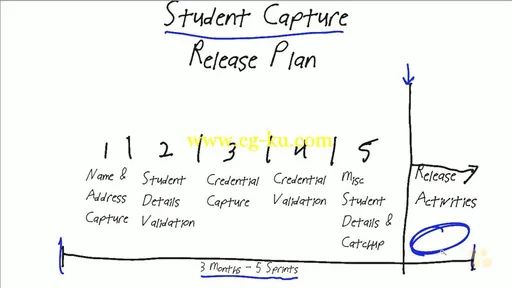 Student Capture
Release Plan
www.cg-ku.com
1 | 2 | 3 | 4 | 5
Name &
Address
Capture
Student
Details
Validation
Credential
Capture
Credential
Validation
Misc
Student
Details &
Catchup
Release
Activities
3 Months - 5 Sprints